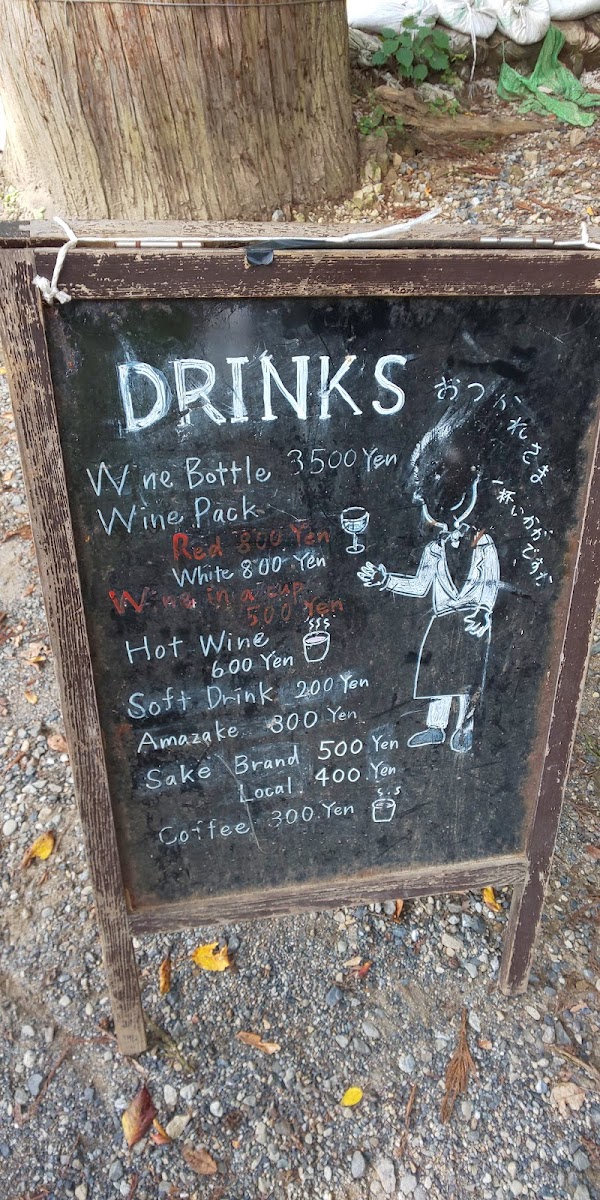 DRINKS
Wine Bottle 3500 Yen
Wine Pack
Red 800 Yen
White 800 Yen
Wine in a cup
500 Yen
Hot Wine
600 Yen
Soft Drink 200 Yen
Amazake 300 Yen
Sake Brand 500 Yen
Local 400 Yen
Coffee 300 Yen
おつかれさま
一杯いかがですか